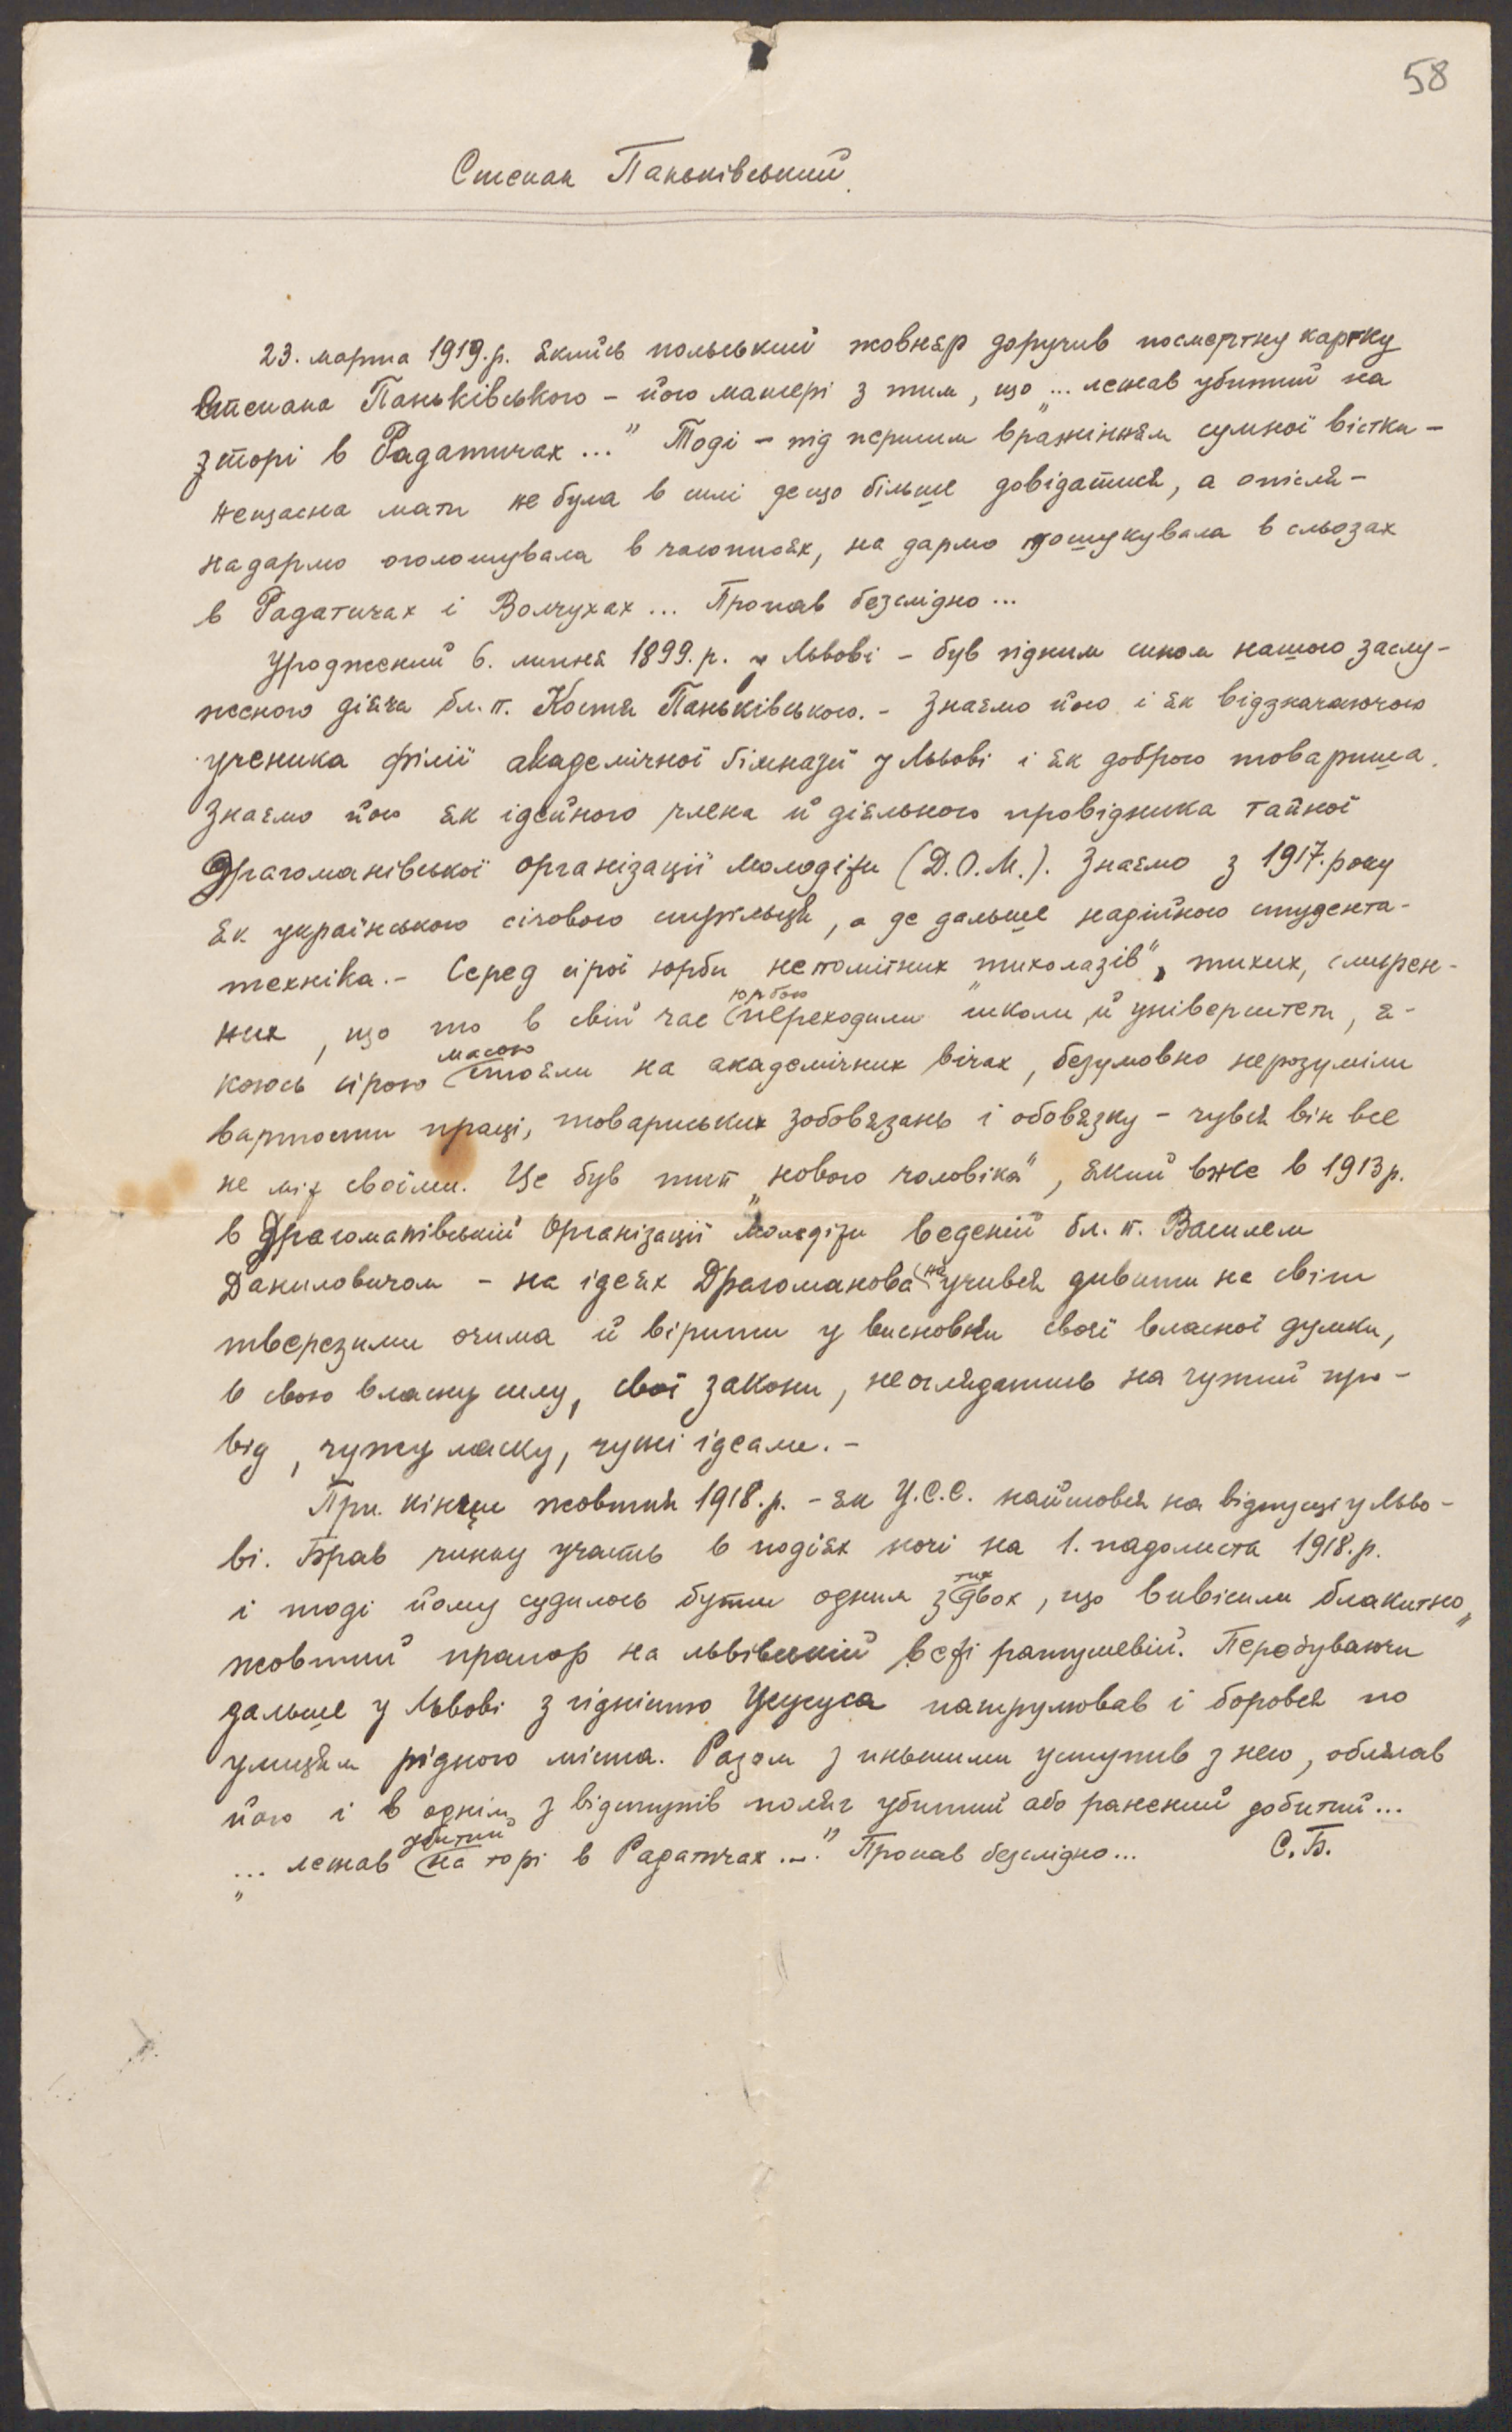 58
Степан Паньківський.
23. марта 1919.р. якийсь польський жовнєр доручив посмертну картку
Степана Паньківського – його матері з тим, що „... лежав убитий на
торі в Радатичах ..." Тоді – під першим вражінням сумної вістки –
нещасна мати не була в силі дещо більше довідатися, а опісля –
надармо оголошувала в часописях, на дармо пошукувала в сльозах
в Радатичах і Волчухах ... Пропав безслідно ...
Уроджений 6. липня 1899.р. у Львові – був гідним сином нашого заслу-
женого діяча бл. п. Костя Паньківського. – Знаємо його і як відзначаючого
ученика філії академічної гімназії у Львові і як доброго товариша.
Знаємо його як ідейного члена й діяльного провідника тайної
Драгоманівської Організації Молодіжи (Д.О.М.). Знаємо з 1917.року
як українського січового стрільця, а де дальше надійного студента-
техніка. – Серед сірої юрби непомітних „тихолазів", тихих, смирен-
них, що то в свій час юрбою переходили школи й університети, я-
коюсь сірою масою стояли на академічних вічах, безумовно нерозуміли
вартости праці, товариських зобовязань і обовязку – чувся він все
не між своїми. Це був тип „нового чоловіка", який вже в 1913 р.
в Драгоманівській Організації Молодіжи веденій бл. п. Василем
Даниловичом – на ідеях Драгоманова научився дивити на світ
тверезими очима й вірити у висновки своєї власної думки,
в свою власну силу, свої закони, неоглядатись на чужий про-
від, чужу ласку, чужі ідеали. –
При кінци жовтня 1918.р. – як У.С.С. найшовся на відпусці у Льво-
ві. Брав чинну участь в подіях ночі на 1. падолиста 1918.р.
і тоді йому судилось бути одним з тих двох, що вивісили блакитно
жовтий прапор на львівській вежі ратушевій. Перебуваючи
дальше у Львові з гідністю Усусуса патрулював і боровся по
улицям рідного міста. Разом з иньшими уступив з него, облягав
його і в однім з відступів поляг убитий або ранений добитий ...
„... лежав убитий на торі в Радатичах ..." Пропав безслідно ... С.Б.